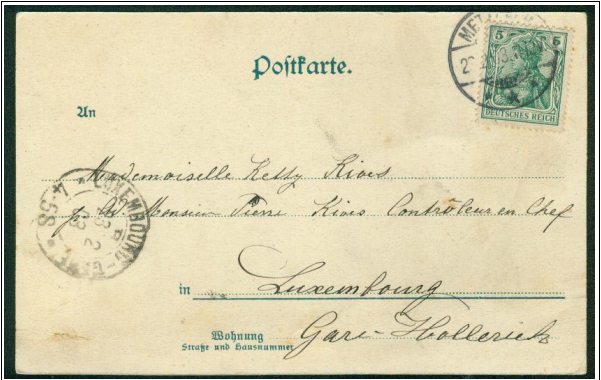 Postkarte.
5 5
DEUTSCHES REICH
METZ
An
Mademoiselle Ketty Kioes
Monsieur Pierre Kioes Contrôleur en Chef
LUXEMBOURG-GARE
in Luxembourg
Wohnung
Straße und Hausnummer
Gare-Hollerich